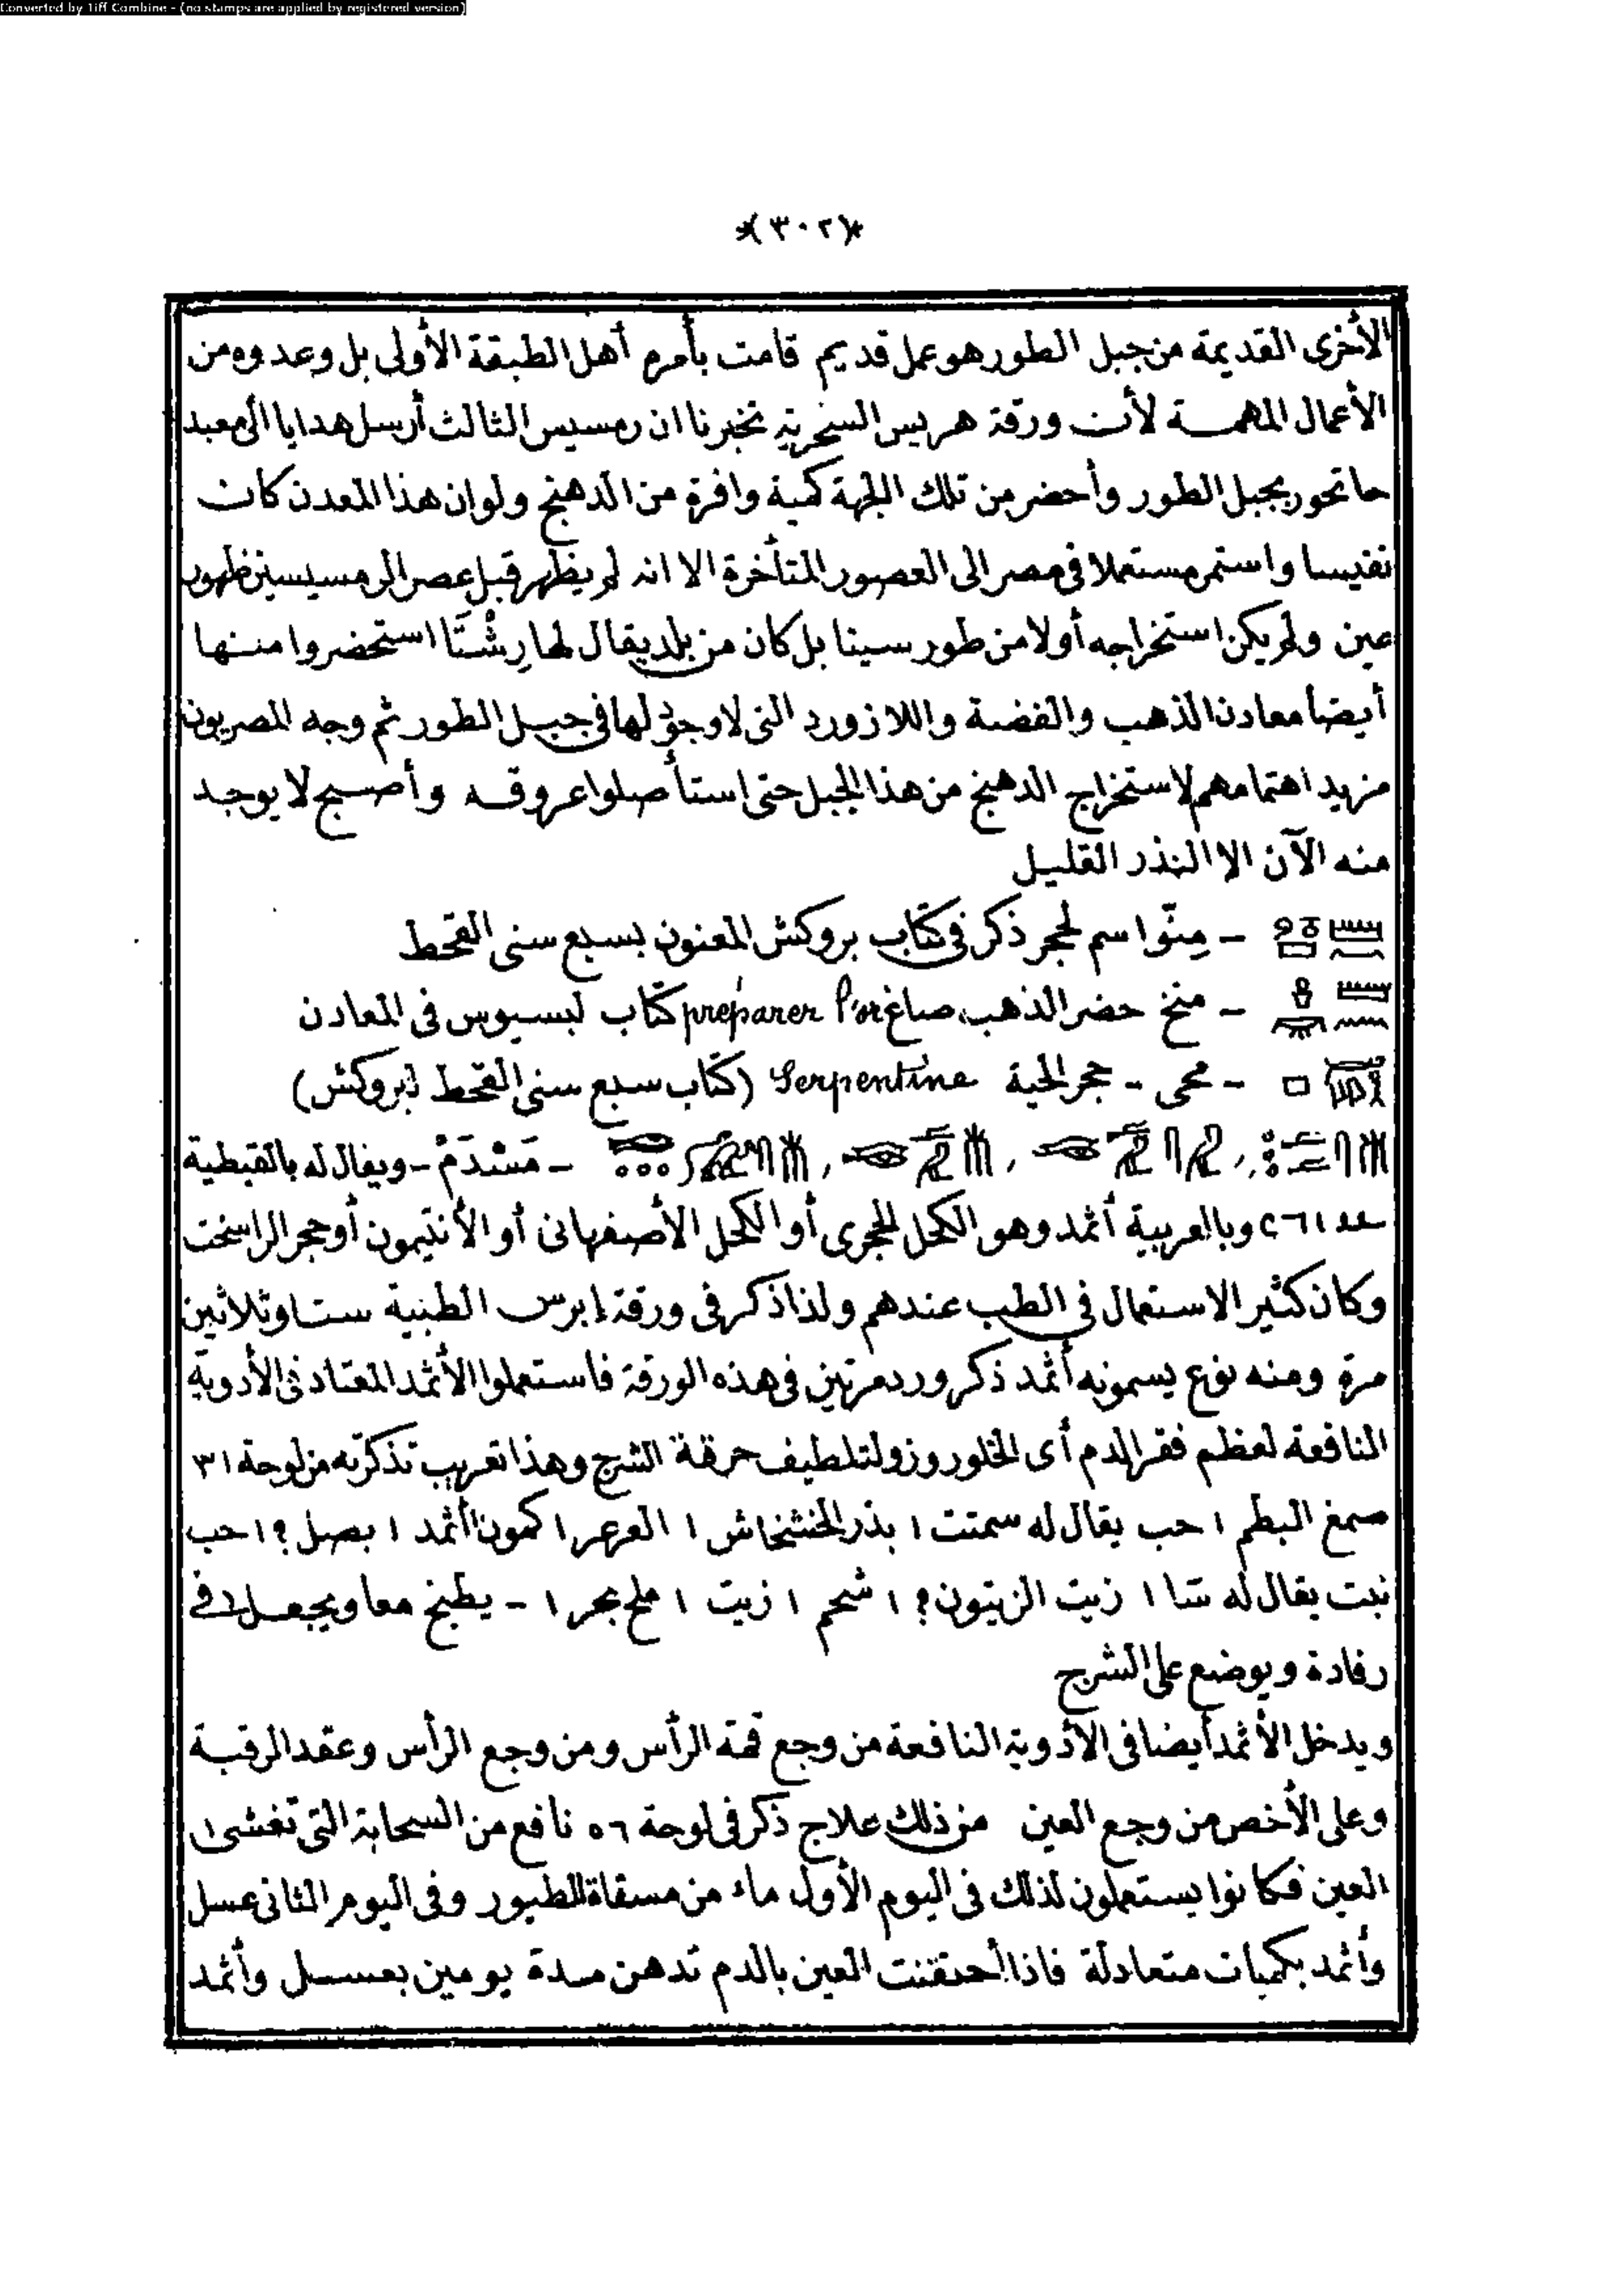 Converted by Tiff Combine - (no stamps are applied by registered version)
*(٣٠٢)*
الأخرى القديمة من جبل الطور هو عمل قديم قامت بأمره أهل الطبقة الأولى بل وعدوه من
الأعمال المهمة لأن ورقة هريس السحرية تخبرنا ان رمسيس الثالث أرسل هدايا الى معبد
حاتحور بجبل الطور وأحضر من تلك الجهة كمية وافرة من الدهنج ولو ان هذا المعدن كان
نفيسا واستمر مستعملا فى مصر الى العصور المتأخرة الا انه لم يظهر قبل عصر الرمسيسين ظهور
عين ولم يكن استخراجه أولا من طور سينا بل كان من بلد يقال لها رِشْتَا استحضروا منها
أيضا معادن الذهب والفضة واللازورد التى لا وجود لها فى جبل الطور ثم وجه المصريون
مزيد اهتمامهم لاستخراج الدهنج من هذا الجبل حتى استأصلوا عروقه وأصبح لا يوجد
منه الآن الا النذر القليل
– مِنّوا سم لحجر ذكر فى كتاب بروكش المعنون بسبع سنى القحط
– منخ حضر الذهب صاغ préparer l'or كتاب لبسيوس فى المعادن
– محى – حجر الحية Serpentine (كتاب سبع سنى القحط لبروكش)
– مَسْدَمْ – ويقال له بالقبطية
وبالعربية أثمد وهو الكحل الحجرى أو الكحل الأصفهانى أو الأنتيمون أو حجر الراسخت
وكان كثير الاستعمال فى الطب عندهم ولذا ذكر فى ورقة إبرس الطبية ستا وثلاثين
مرة ومنه نوع يسمونه أثمد ذكر ورد مرتين فى هذه الورقة فاستعملوا الأثمد المعتاد فى الأدوية
النافعة لعظم فقر الدم أى الخلوروز ولتلطيف حرقة الشرج وهذا تعريب تذكرته من لوحة ٣١
صمغ البطم ١ حب يقال له سمتت ١ بذر الخشخاش ١ العرعر ١ كمون ١ أثمد ١ بصل ؟ ١ حب
نبت يقال له ١ زيت الزيتون ؟ ١ شحم ١ زيت ١ ملح بحر ١ – يطبخ معا ويجعل فى
رفادة ويوضع على الشرج
ويدخل الأثمد أيضا فى الأدوية النافعة من وجع قمة الرأس ومن وجع الرأس وعقد الرقبة
وعلى الأخص من وجع العين من ذلك علاج ذكر فى لوحة ٥٦ نافع من السحابة التى تغشى
العين فكانوا يستعملون لذلك فى اليوم الأول ماء من مسقاة الطيور وفى اليوم الثانى عسل
وأثمد بكميات متعادلة فاذا أحتقنت العين بالدم تدهن مدة يومين بعسل وأثمد